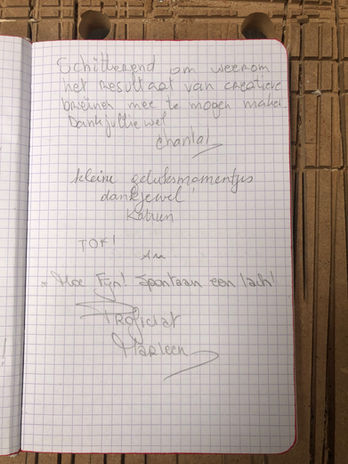 Schitterend om weerom
het resultaat van creatieve
breinen mee te mogen maken.
Dank jullie wel
Chantal
kleine geluksmomentjes
dankjewel!
Katrien
TOF!
An
Hoe Fijn! Spontaan een lach!
Proficiat
Marleen